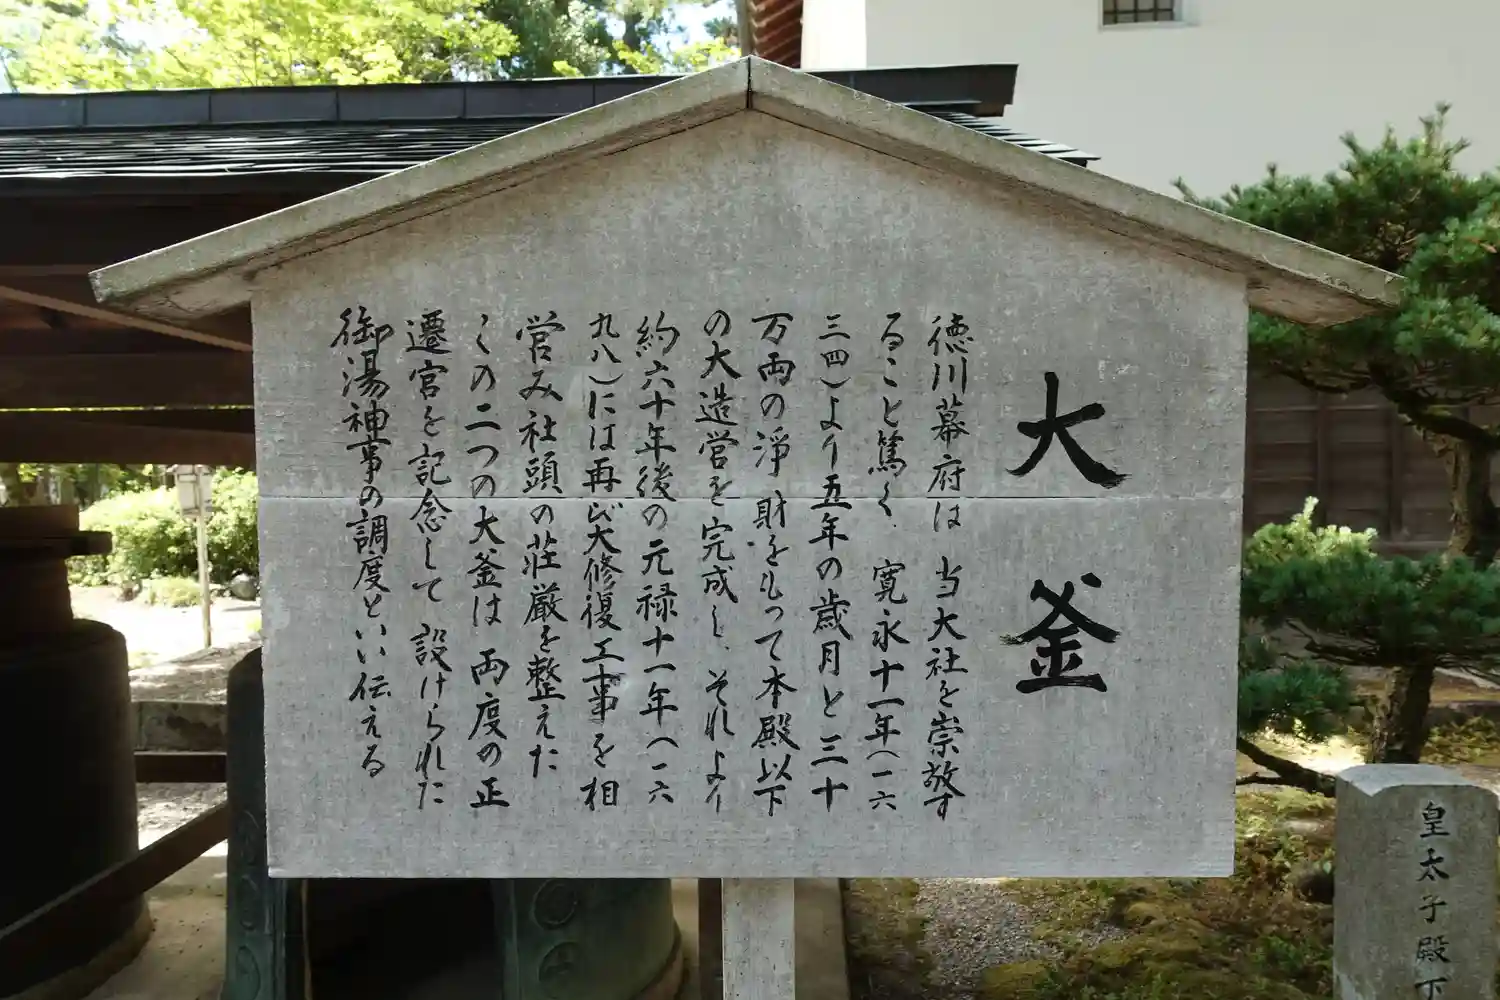 大釜
徳川幕府は 当大社を崇敬す
ること篤く、寛永十一年(一六
三四)より五年の歳月と三十
万両の淨財をもって本殿以下
の大造営を完成し、それより
約六十年後の元禄十一年(一六
九八)には再び大修復工事を相
営み社頭の荘厳を整えた
この二つの大釜は 両度の正
遷宮を記念して 設けられた
御湯神事の調度とい伝える
皇太子殿下